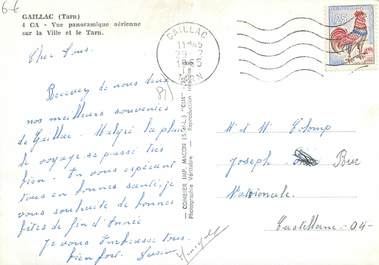 6-€
GAILLAC (Tarn)
4 CA - Vue panoramique aérienne
sur la Ville et le Tarn.
Cher
Recevez de nous deux
nos meilleurs souvenirs
de Gaillac. Malgré la pluie
le voyage se passe très
bien. En vous espérant
tous en bonnes santé, je
vous souhaite de bonnes
fêtes de fin d'Année
Je vous embrasse tous
bien fort.
81)
COMBIER IMP. MACON
Photographie Véritable - Reproduction
GAILLAC
TARN
M et M
Joseph
Nationale
Castellane -04-